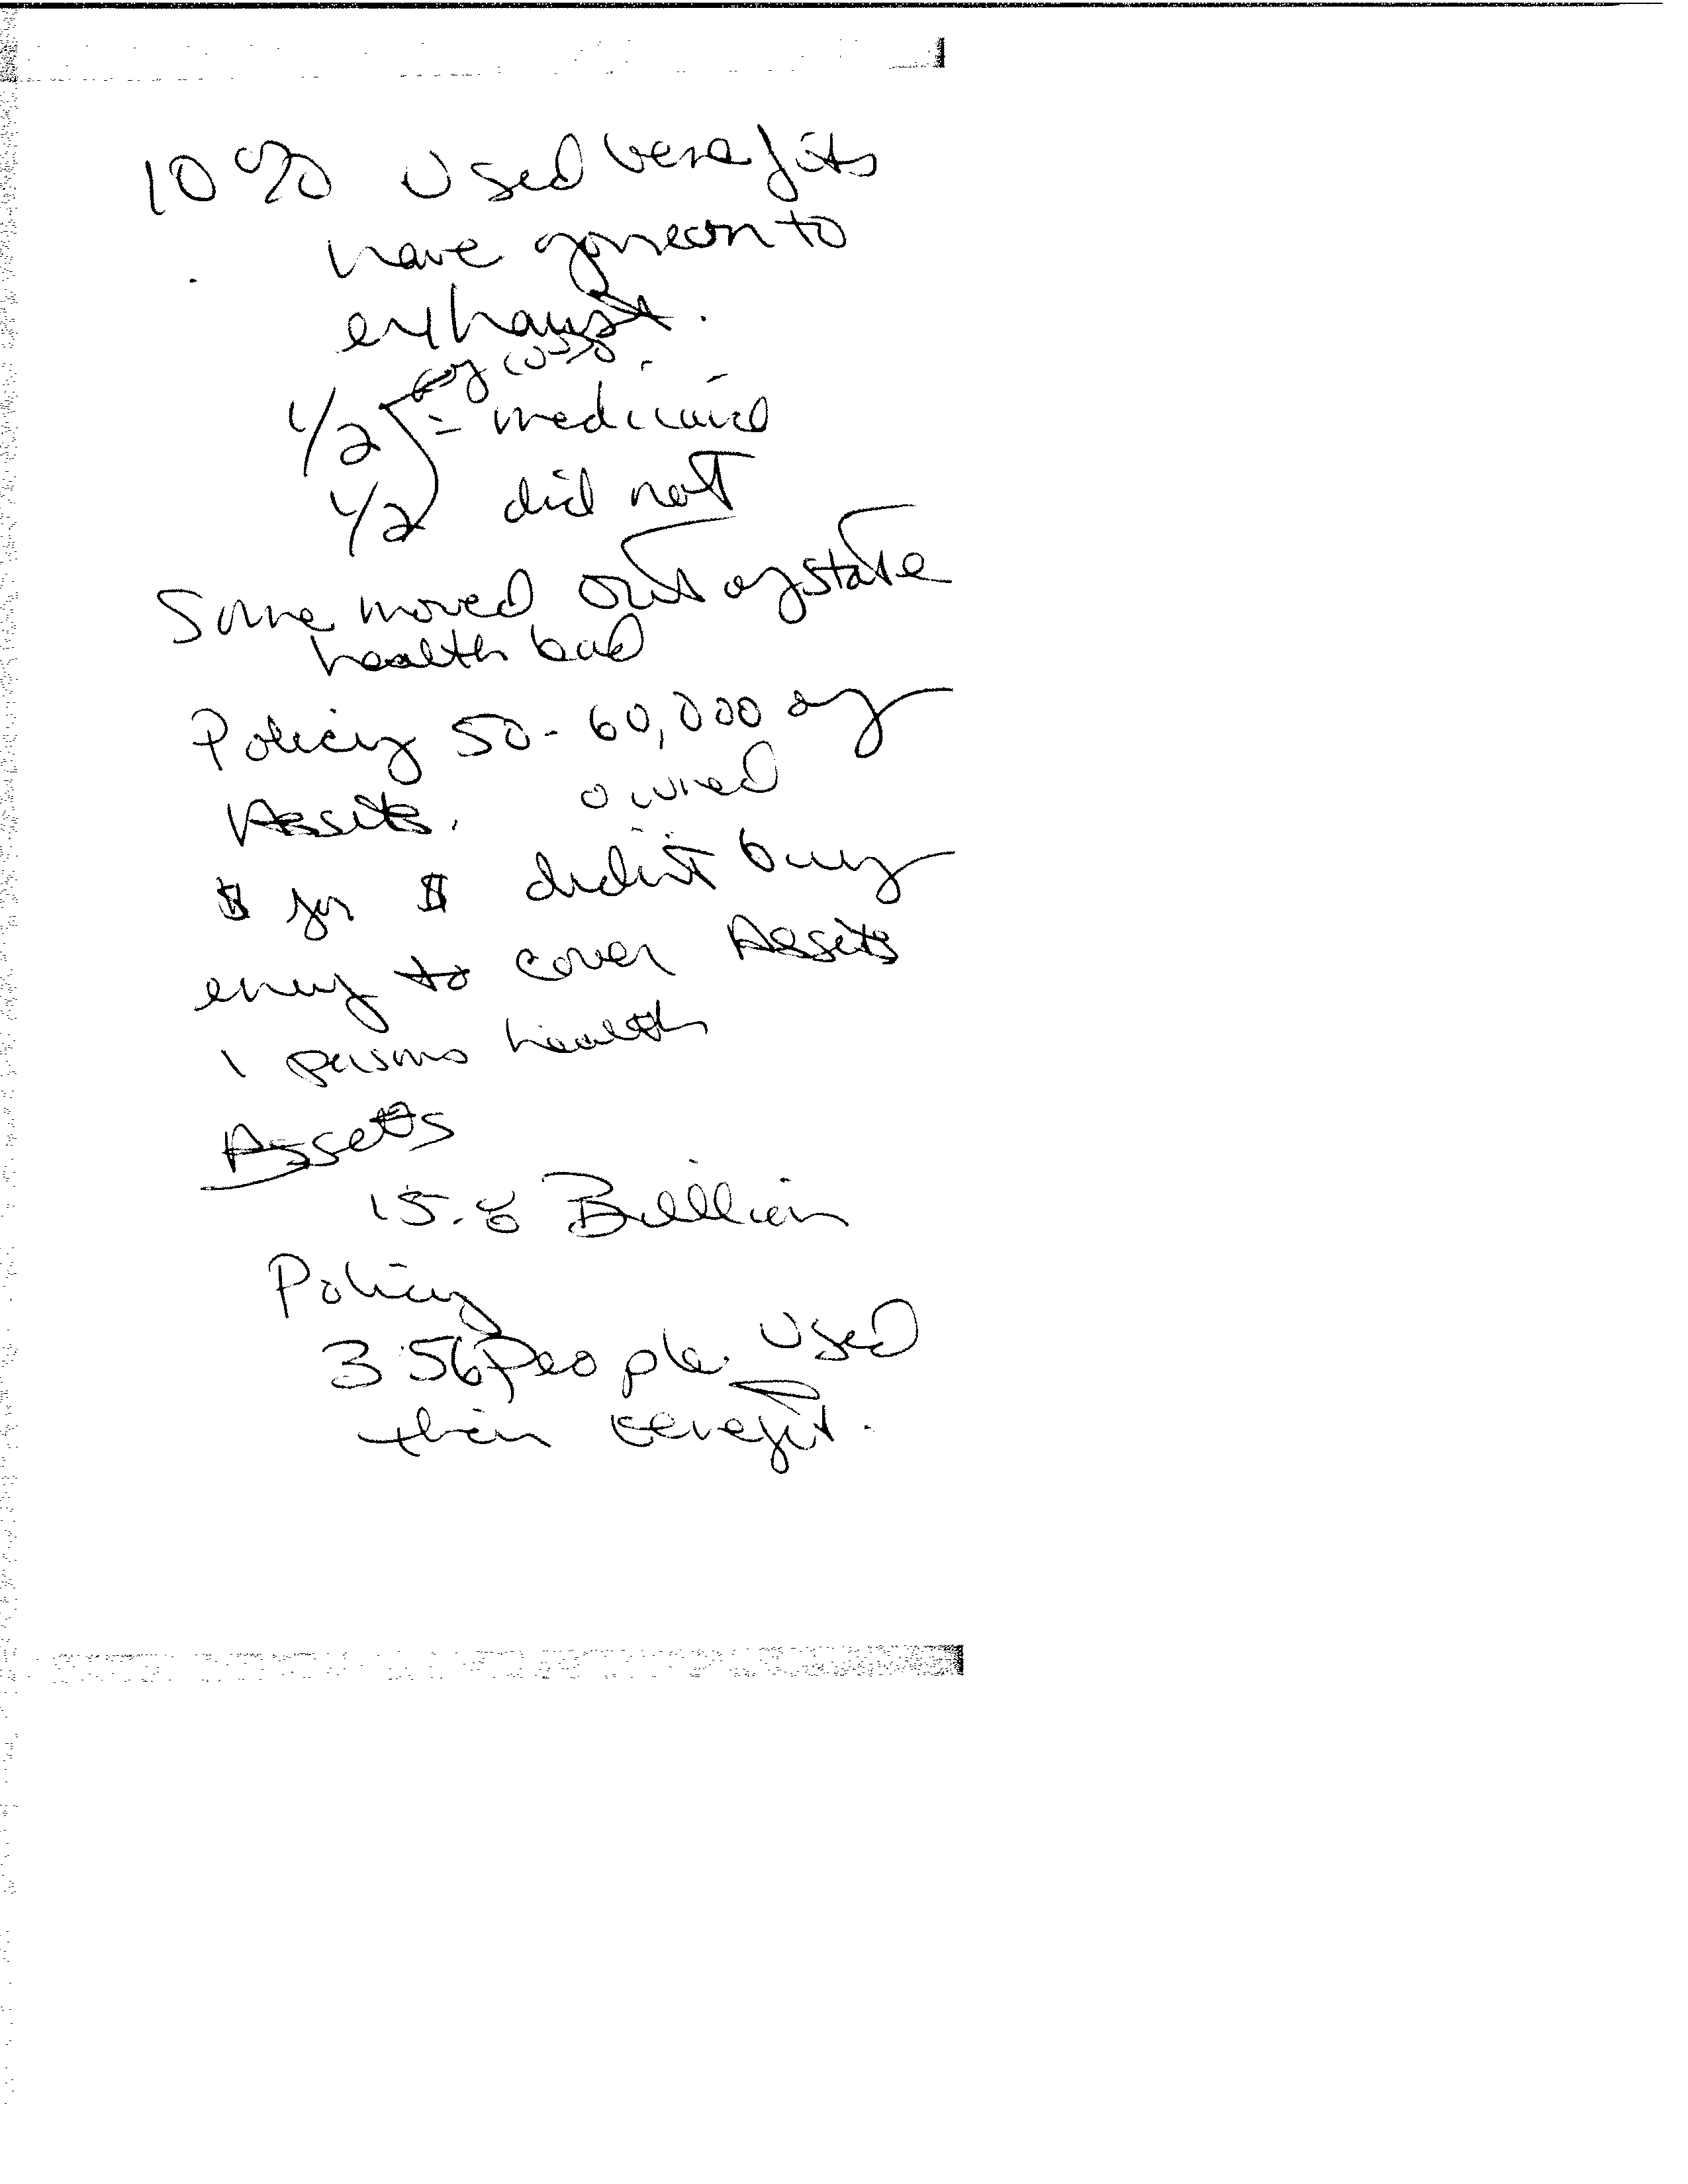 10% Used benefits
have gone on to
exhaust.
of 10%
1/2 = medicaid
1/2 did not
Some moved out of state
health bad
Policy 50-60,000 of
Assets. owned
$ for $ didint buy
enuy to cover Assets
1 persons health
Assets
15.8 Billion
Policy
356 People used
their benefit.